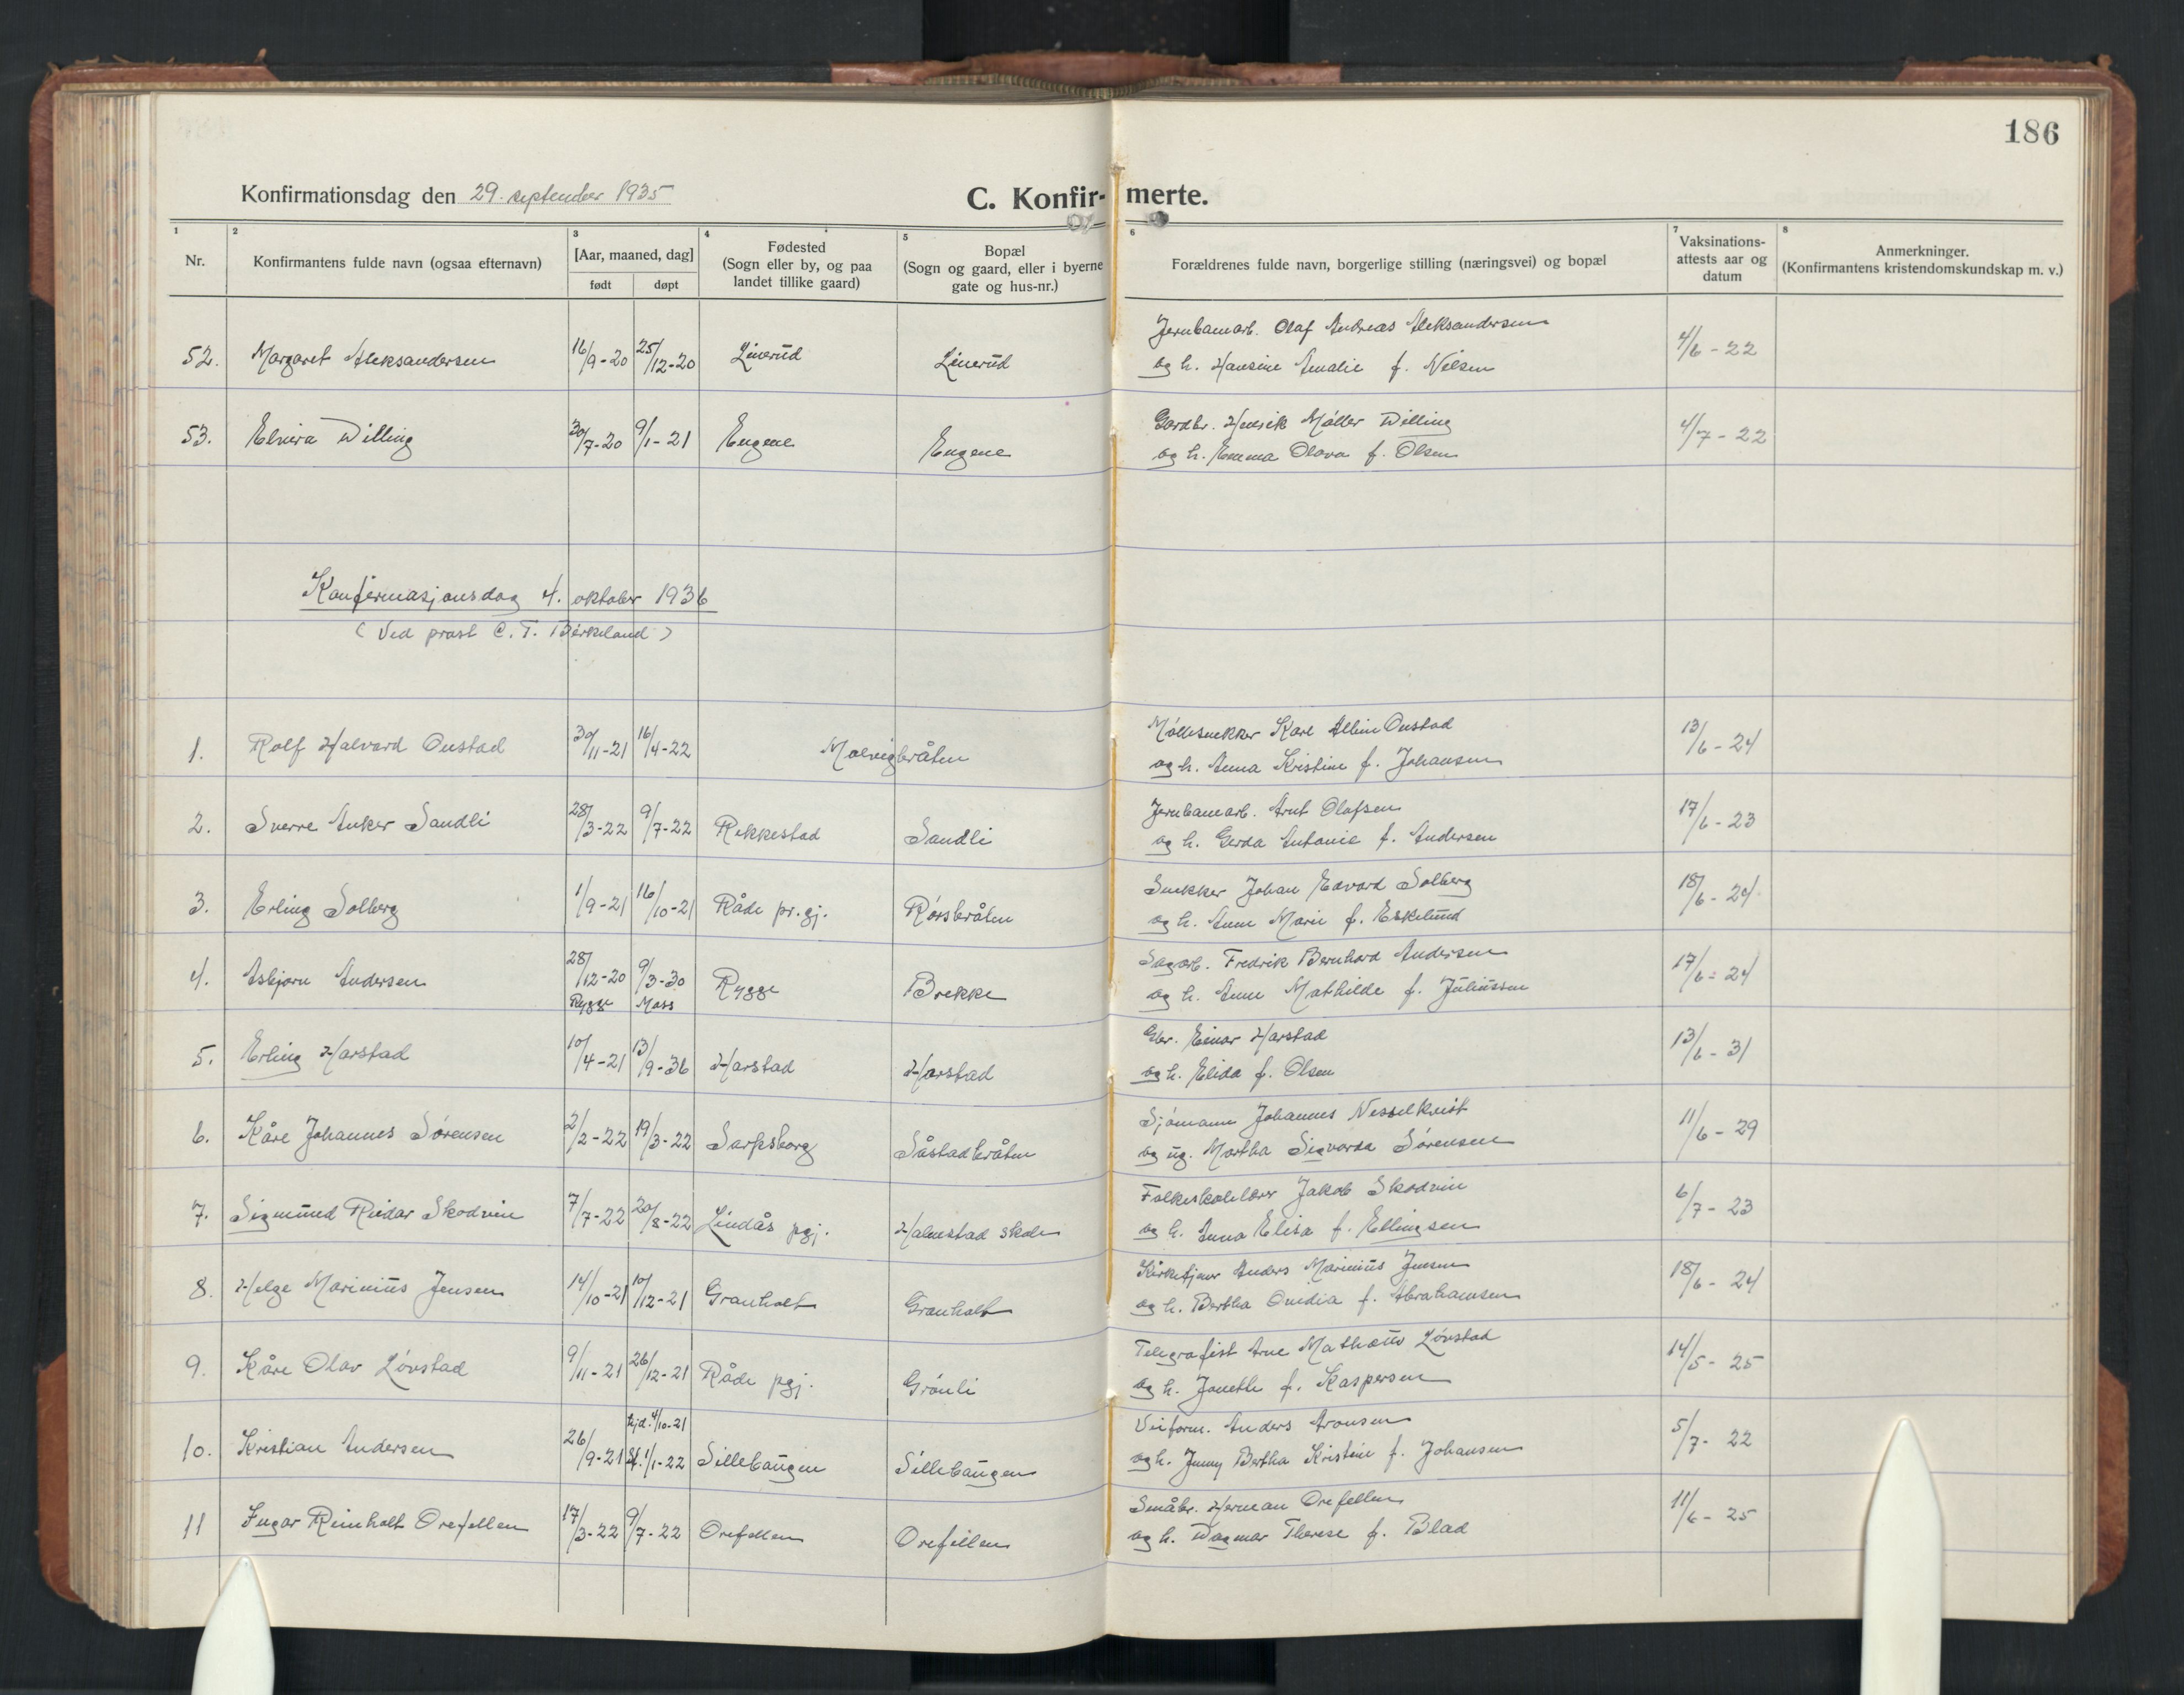 186
Konfirmationsdag den 29. september 1935
C. Konfir- merte.
1 2 3 4 5 6 7 8
Nr.
Konfirmantens fulde navn (ogsaa efternavn)
[Aar, maaned, dag]
født døpt
Fødested
(Sogn eller by, og paa
landet tillike gaard)
Bopæl
(Sogn og gaard, eller i byerne
gate og hus-nr.)
Forældrenes fulde navn, borgerlige stilling (næringsvei) og bopæl
Vaksinations-
attests aar og
datum
Anmerkninger.
(Konfirmantens kristendomskundskap m. v.)
Jernbanearb. Olaf Andreas Aleksandersen
52. Margaret Aleksandersen 16/9-20 25/12-20 Linerud Linerud 4/6-22
og h. Hansine Amalie f. Nilsen
Gardbr. Henrik Møller Willing
53. Elvira Willing 30/7-20 9/1-21 Engene Engene 4/7-22
og h. Emma Olava f. Olsen
Konfirmasjonsdag 4. oktober 1936
(Ved prost C. T. Birkeland)
Møllesnekker Kare Albin Onstad
1. Rolf Halvard Onstad 30/11-21 16/4-22 Malvigbråten 13/6-24
og h. Anna Kristine f. Johansen
Jernbanearb. Arnt Olafsen
2. Sverre Anker Sandli 28/3-22 9/7-22 Rakkestad Sandli 17/6-23
og h. Gerda Antonie f. Andersen
Snekker Johan Edvard Solberg
3. Erling Solberg 1/9-21 16/10-21 Råde pr.gj. Rørsbråten 18/6-24
og h. Anne Marie f. Eskelund
Sagarb. Fredrik Bernhard Andersen
4. Asbjørn Andersen 28/12-20 9/3-30 Rygge Brekke 17/6-24
Rygge Moss
og h. Anne Mathilde f. Juliussen
Gbr. Einar Harstad
5. Erling Harstad 10/4-21 13/9-36 Harstad Harstad 13/6-31
og h. Elida f. Olsen
Sjømann Johannes Nesselkvist
6. Kåre Johannes Sørensen 2/2-22 19/3-22 Sarpsborg Såstadbråten 11/6-29
og ug. Martha Sigvarda Sørensen
Folkeskolelærer Jakob Skodvin
7. Sigmund Reidar Skodvin 7/7-22 20/8-22 Lindås pgj. Halmstad skole 6/7-23
og h. Anna Elisa f. Ellingsen
Kirketjener Anders Marinius Jensen
8. Helge Marinius Jensen 14/10-21 10/12-21 Granholt Granholt 18/6-24
og h. Bertha Ovedia f. Abrahamsen
Telegrafist Arne Mathæus Løvstad
9. Kåre Olav Løvstad 9/11-21 26/12-21 Råde pgj. Grønli 14/5-25
og h. Janette f. Kaspersen
Veiform. Anders Aronsen
hjd. 4/10-21
10. Kristian Andersen 26/9-21 St. 1/1-22 Sillebaugen Sillebaugen 5/7-22
og h. Jenny Bertha Kristine f. Johansen
Småbr. Herman Orefellen
11 Ingar Reinholt Orefellen 17/3-22 9/7-22 Orefellen Orefellen 11/6-25
og h. Dagmar Therese f. Blad